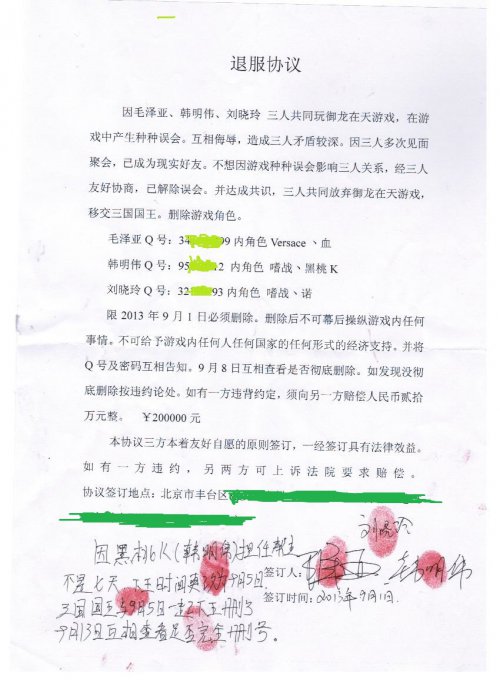 退服协议
因毛泽亚、韩明伟、刘晓玲 三人共同玩御龙在天游戏，在游
戏中产生种种误会。互相侮辱，造成三人矛盾较深。因三人多次见面
聚会，已成为现实好友。不想因游戏种种误会影响三人关系，经三人
友好协商，已解除误会。并达成共识，三人共同放弃御龙在天游戏，
移交三国国王。删除游戏角色。
毛泽亚 Q 号：34 99 内角色 Versace、血
韩明伟 Q 号：95 2 内角色 嗜战、黑桃 K
刘晓玲 Q 号：32 93 内角色 嗜战、诺
限 2013 年 9 月 1 日必须删除。删除后不可幕后操纵游戏内任何
事情。不可给予游戏内任何人任何国家的任何形式的经济支持。并将
Q 号及密码互相告知。9 月 8 日互相查看是否彻底删除。如发现没彻
底删除按违约论处。如有一方违背约定，须向另一方赔偿人民币贰拾
万元整。 ￥200000 元
本协议三方本着友好自愿的原则签订，一经签订具有法律效益。
如有一方违约，另两方可上诉法院要求赔偿。
协议签订地点：北京市丰台区
刘晓玲
因黑桃K(韩明伟)担任帮主
签订人： 韩明伟
不足七天 下王时间 9月5日
签订时间：2013年9月1日
三国国王与9月5日一起下王删号
9月13日互相查看是否完全删号。